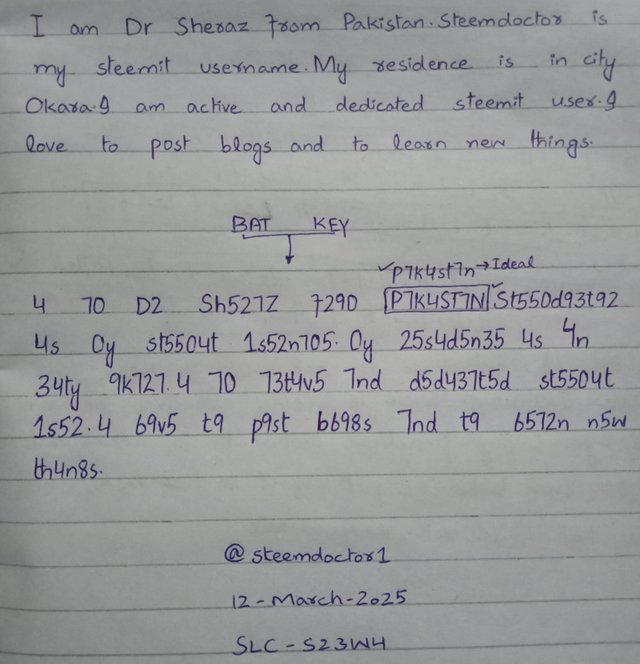 I am Dr Sheraz from Pakistan. Steemdoctor is
my steemit username. My residence is in city
Okara. I am active and dedicated steemit user. I
love to post blogs and to learn new things.
BAT KEY
✓P7K4st7n → Ideal
4 70 D2 Sh527Z 7290 P7K4ST7N ✓ St550d93t92
4s 0y st5504t 1s52n705. 0y 25s4d5n35 4s 4n
34ty 9k727. 4 70 73t4v5 7nd d5d437t5d st5504t
1s52. 4 69v5 t9 p9st b698s 7nd t9 6572n n5w
th4n8s.
@steemdoctor1
12-March-2025
SLC-S23W4